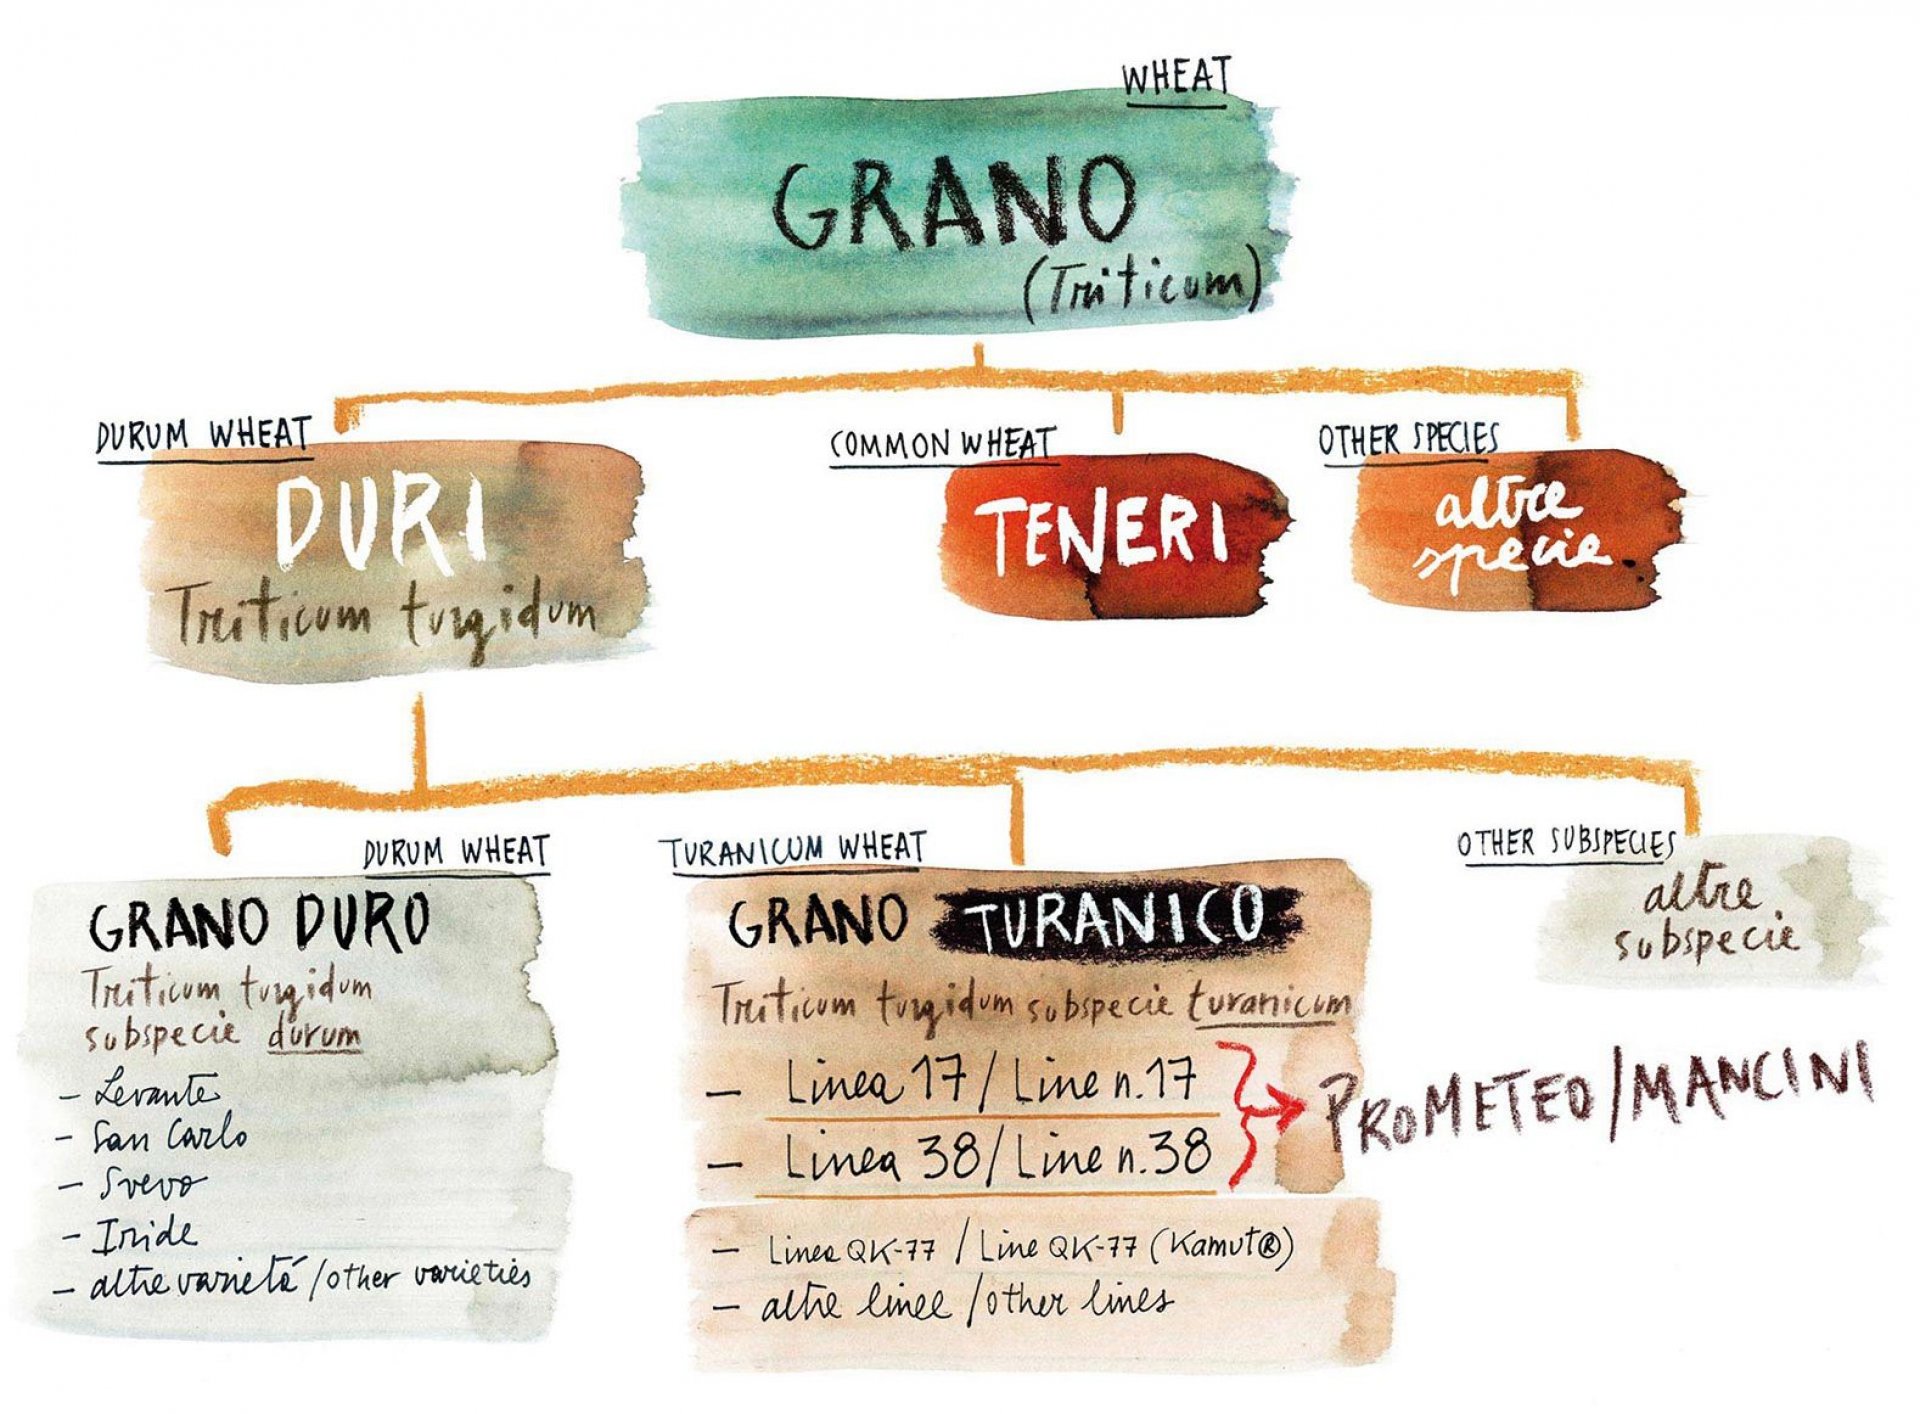 WHEAT
GRANO
(Triticum)
DURUM WHEAT
DURI
Triticum turgidum
COMMON WHEAT
TENERI
OTHER SPECIES
altre
specie
DURUM WHEAT
GRANO DURO
Triticum turgidum
subspecie durum
- Levante
- San Carlo
- Svevo
- Iride
- altre varietá / other varieties
TURANICUM WHEAT
GRANO TURANICO
Triticum turgidum subspecie turanicum
- Linea 17 / Line n.17
- Linea 38 / Line n.38
PROMETEO/MANCINI
- Linea QK-77 / Line QK-77 (Kamut®)
- altre linee / other lines
OTHER SUBSPECIES
altre
subspecie